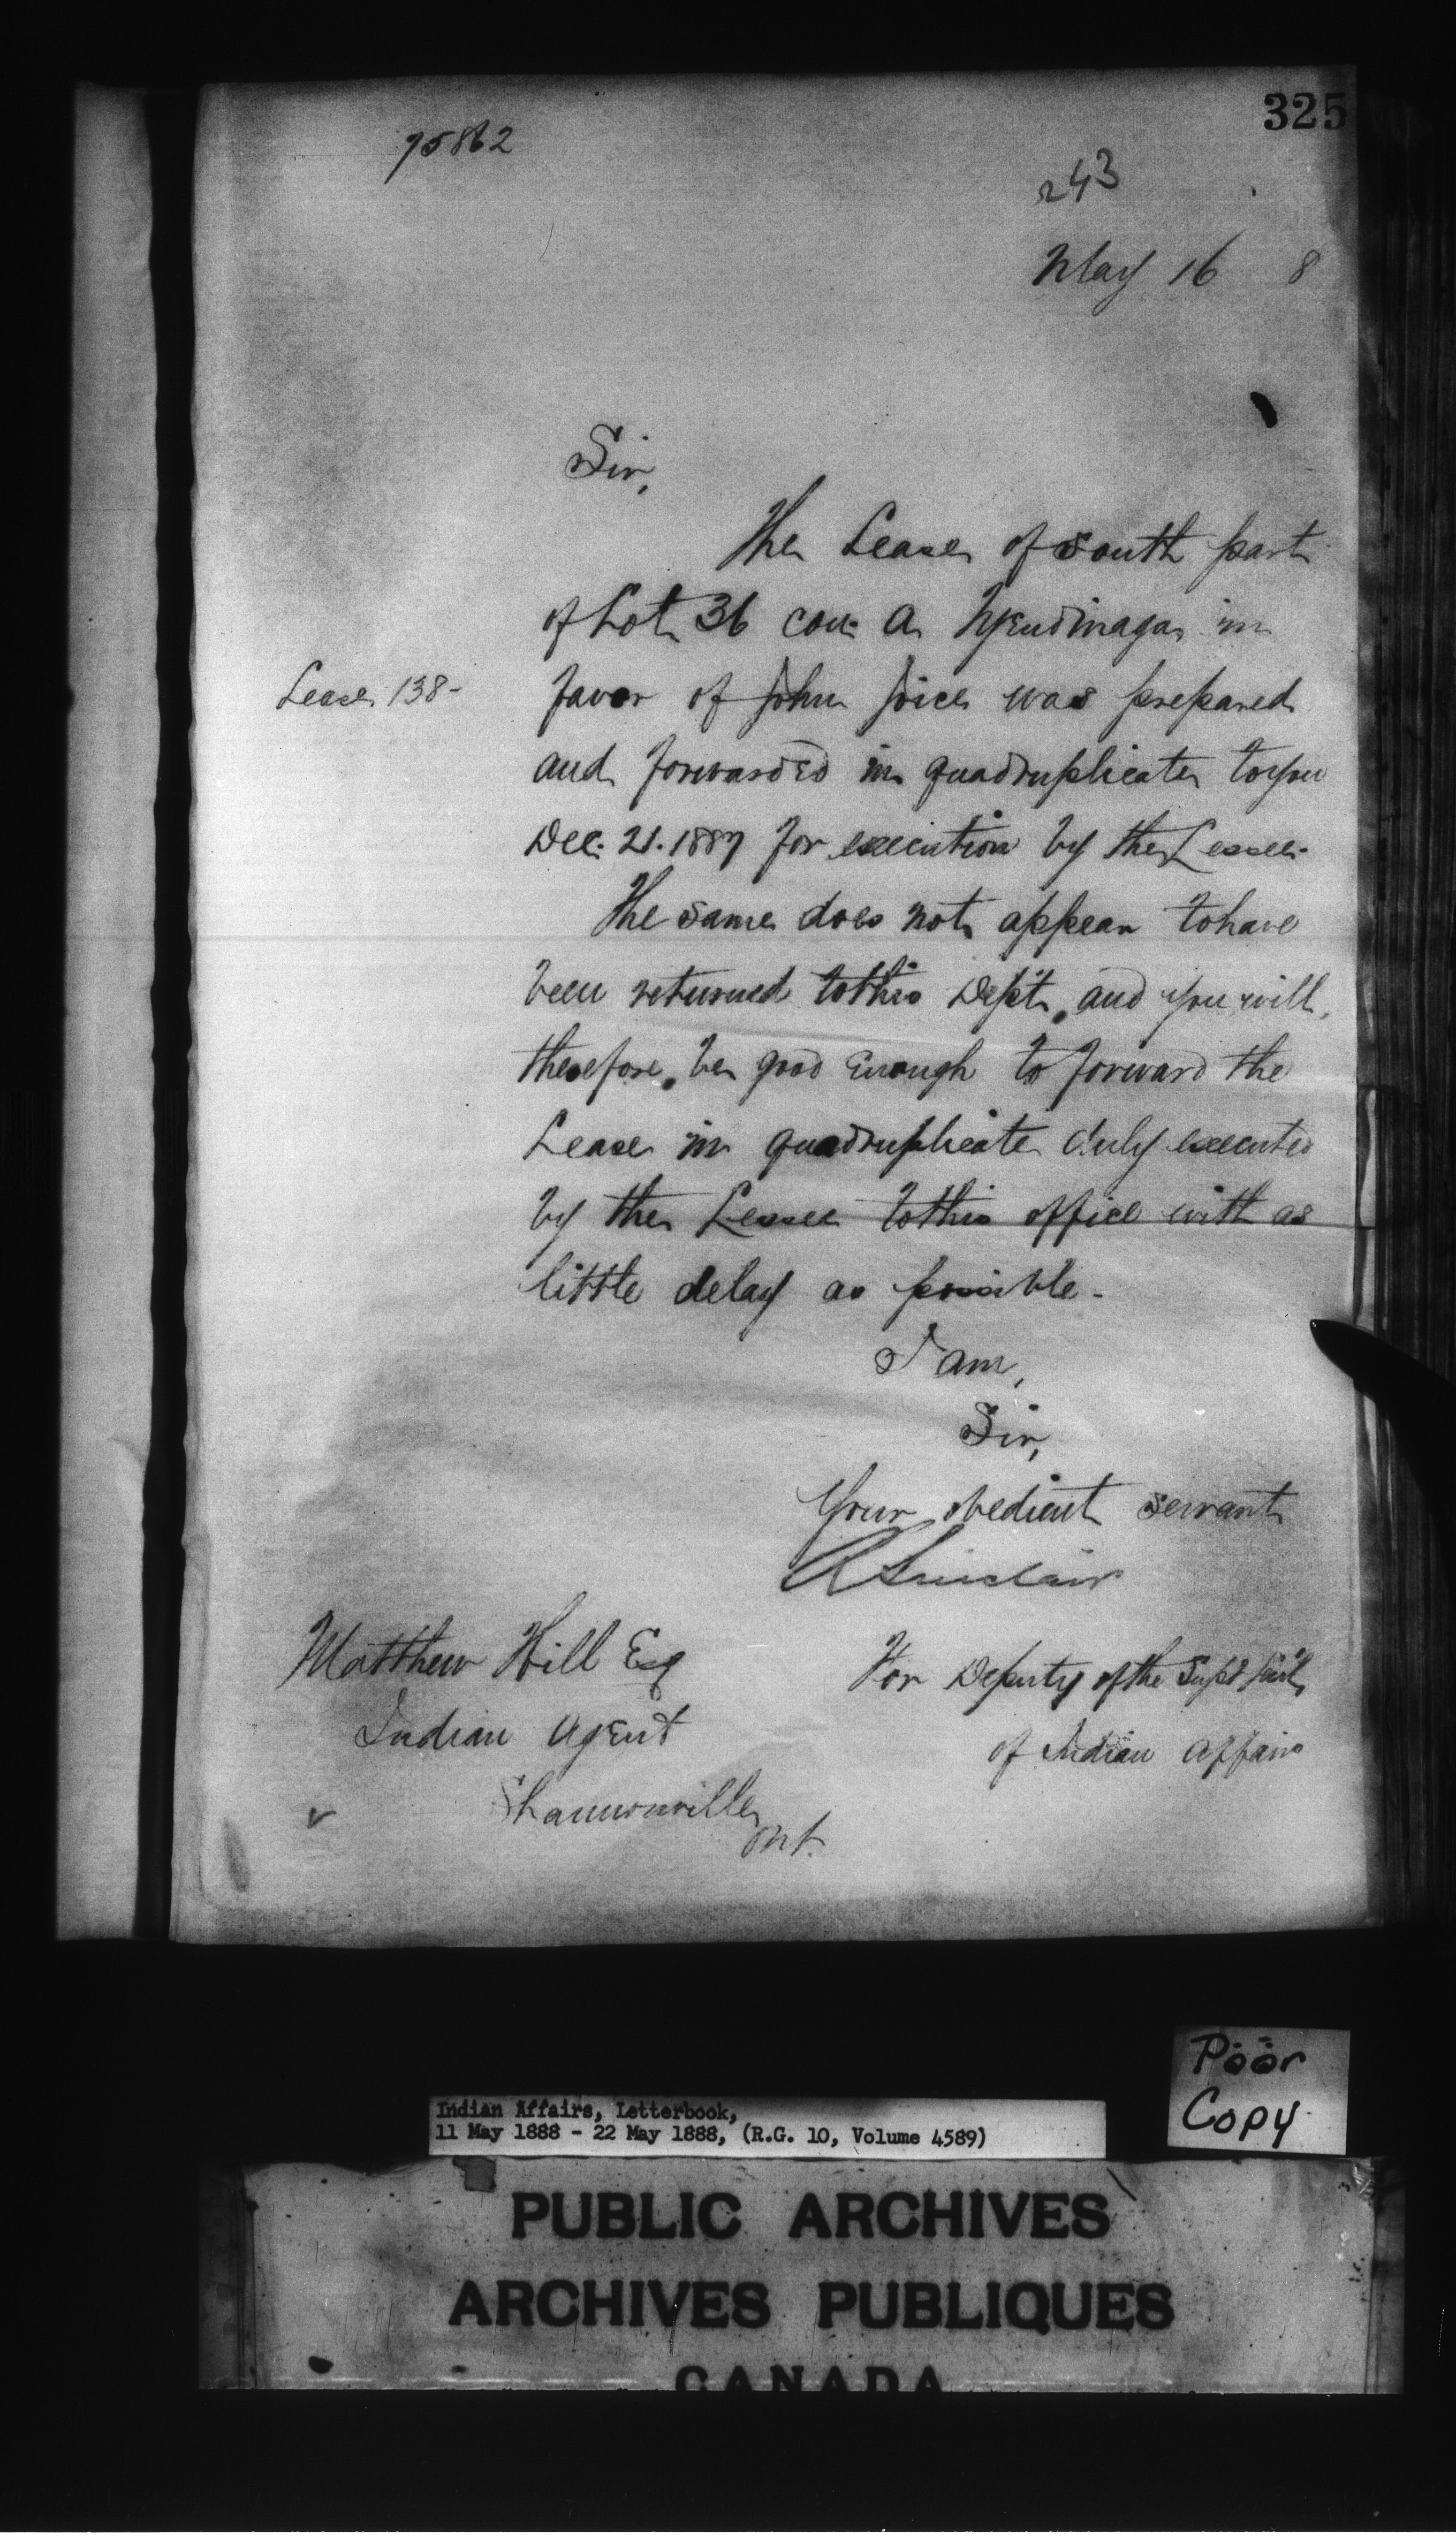 325
75862
243
May 16 8
Sir,
The Lease of south part
of Lot 36 con. A Tyendinaga in
Lease 138-
favor of John Joice was prepared
and forwarded in quadruplicate to you
Dec. 21. 1887 for execution by the Lessee.
The same does not appear to have
been returned to this Dep't, and you will,
therefore, be good enough to forward the
Lease in quadruplicate duly executed
by the Lessee to this office with as
little delay as possible.
I am,
Sir,
Your obedient servant
R Sinclair
For Deputy of the Sup't Gen'l
of Indian Affairs
Matthew Hill Esq
Indian Agent
Shannonville
Ont.
Poor
Copy
Indian Affairs, Letterbook,
11 May 1888 - 22 May 1888, (R.G. 10, Volume 4589)
PUBLIC ARCHIVES
ARCHIVES PUBLIQUES
CANADA